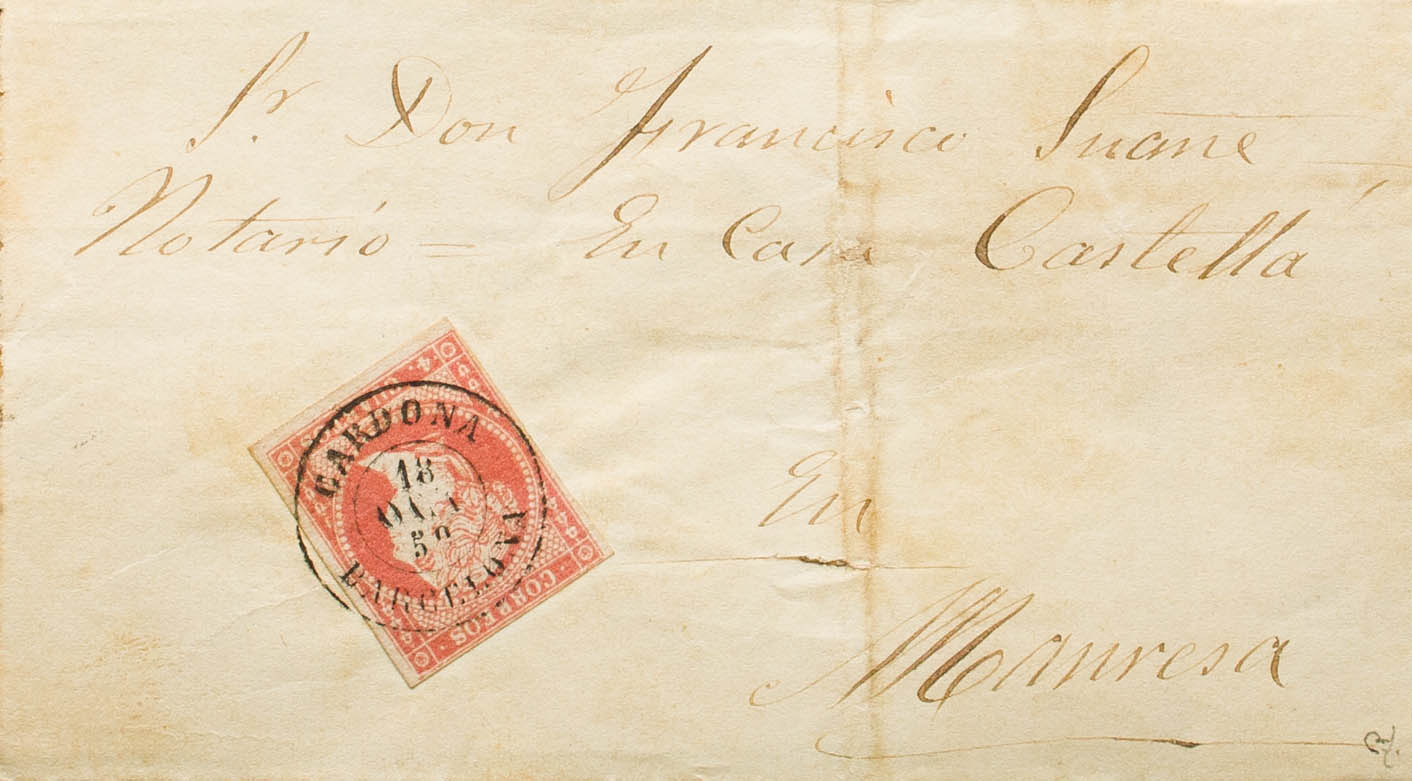 Sr. Don Francisco Suañe
Notario = En Casa Castellá
CARDONA
18
59
BARCELONA
CORREOS
En
Manresa